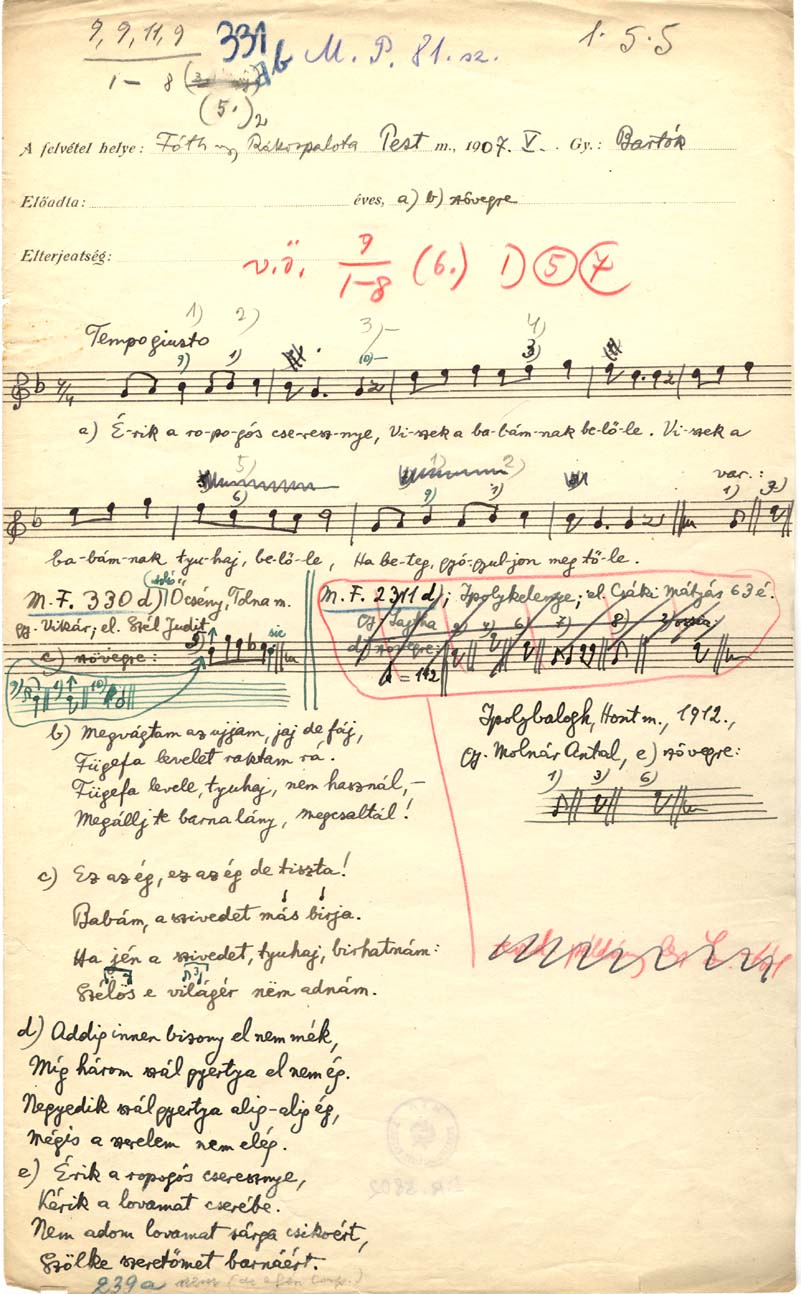 9, 9, 11, 9 331 b M. P. 81. sz. 1. 5. 5
1 – 8
(5.) 2
A felvétel helye: Fóth és Rákospalota Pest m., 1907. V. Gy.: Bartók
Előadta: éves, a) b) szövegre
Elterjeatség: v.ö. 9/1-8 (6.) 1) 5 7
1) 2) 3) – 4)
Tempo giusto
9) 1) 10) – 3)
a) É-rik a ro-po-gós cse-resz-nye, Vi-szek a ba-bám-nak be-lő-le. Vi-szek a
5) 1) 2) var.:
6) 9) 1) 1) 3)
ba-bám-nak tyu-haj, be-lő-le, Ha be-teg, gyó-gyul-jon meg tő-le.
M. F. 330 d) Őcsény, Tolna m.
gy. Vikár; el. Szél Judit
c) szövegre: 5) sic
M. F. 2311 d); Ipolykelenye; el. Csáki Mátyás 63 é.
gy. Lajtha 2) 4) 6) 7) 8)
d) szövegre:
= 112
b) Megvágtam az ujjam, jaj de fáj,
Fügefa levelet raktam rá.
Fügefa levele, tyuhaj, nem használ, –
Megállj te barna lány, megcsaltál!
Ipolybalogh, Hont m., 1912.,
gy. Molnár Antal, e) szövegre:
1) 3) 6)
c) Ez az ég, ez az ég de tiszta!
Babám, a szivedet más birja.
Ha jén a szivedet, tyuhaj, birhatnám:
Szélös e világér nëm adnám.
d) Addig innen bizony el nem mék,
Míg három szál gyertya el nem ég.
Negyedik szál gyertya alig-alig ég,
Mégis a szerelem nem elég.
e) Érik a ropogós cseresznye,
Kérik a lovamat cserébe.
Nem adom lovamat sárga csikóért,
Szőlke szeretőmet barnáért.
239a